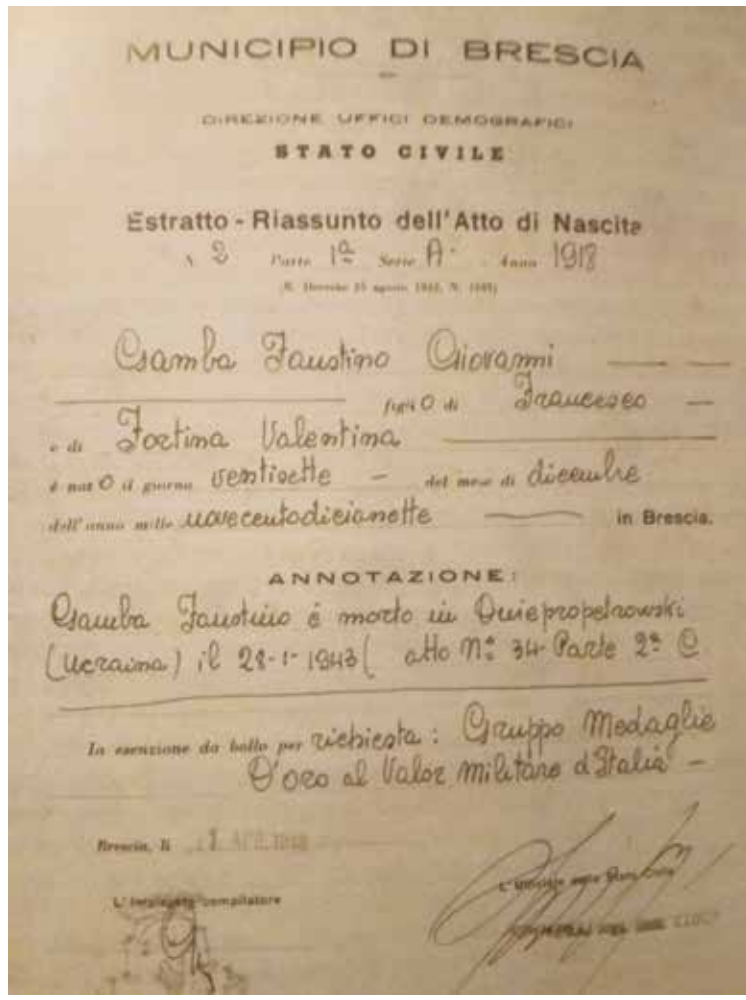 MUNICIPIO DI BRESCIA
DIREZIONE UFFICI DEMOGRAFICI
STATO CIVILE
Estratto - Riassunto dell'Atto di Nascita
N. 2 Parte 1ª Serie A. Anno 1918
Gamba Faustino Giovanni
figliO di Francesco
e di Fortina Valentina
è natO il giorno ventisette del mese di dicembre
dell'anno mille novecentodicianette in Brescia.
ANNOTAZIONE:
Gamba Faustino è morto in Dniepropetrowski
(Ucraina) il 28-1-1943 ( atto N° 34 Parte 2ª C
In esenzione da bollo per richiesta: Gruppo Medaglie
D'oro al Valor Militare d'Italia -
Brescia, li 1 APR.
L'impiegato compilatore
L'Ufficiale dello Stato Civile